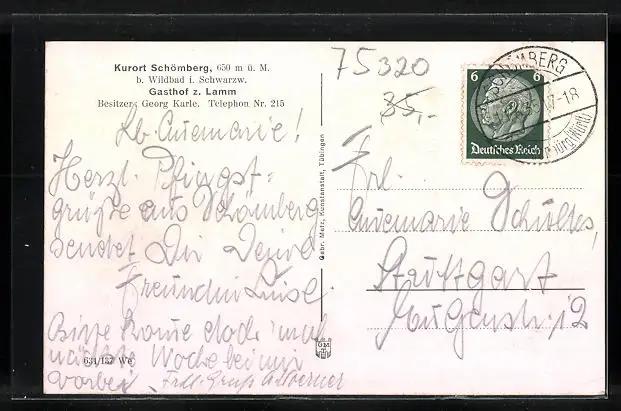 Kurort Schömberg, 650 m ü. M.
b. Wildbad i. Schwarzw.
Gasthof z. Lamm
Besitzer: Georg Karle. Telephon Nr. 215
Lb. Annemarie!
Herzl. Pfingst-
grüße aus Schömberg
sendet Dir Deine
Freundin Luise.
Bitte komme doch mal
nächste Woche bei mir
vorbei.
Gebr. Metz, Kunstanstalt, Tübingen
634/137 We
75320
35,-
6 6
Deutsches Reich
SCHÖMBERG
Frl.
Annemarie Schultes,
Stuttgart
Eugenstr. 12